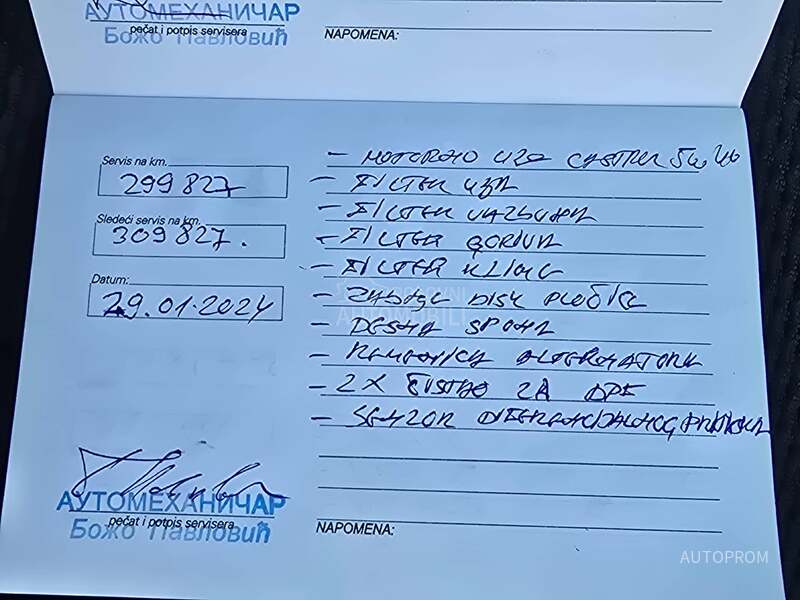 АУТОМЕХАНИЧАР
pečat i potpis servisera
Божо Павловић
NAPOMENA:
Servis na km.
299 827
Sledeći servis na km.
309 827.
Datum:
29.01.2024
- MOTORNO UZO CASTROL 5W40
- FILTER UZA
- FILTER VAZDUHA
- FILTER GORIVA
- FILTER KLIME
- ZADNJE DISK PLOČICE
- DESNA SPONA
- REMENICA ALTERNATORA
- 2X ČISTAO ZA DPF
- SENZOR DIFERENCIJALNOG PRITISKA
АУТОМЕХАНИЧАР
pečat i potpis servisera
Божо Павловић
NAPOMENA:
AUTOMOBILI
AUTOPROM